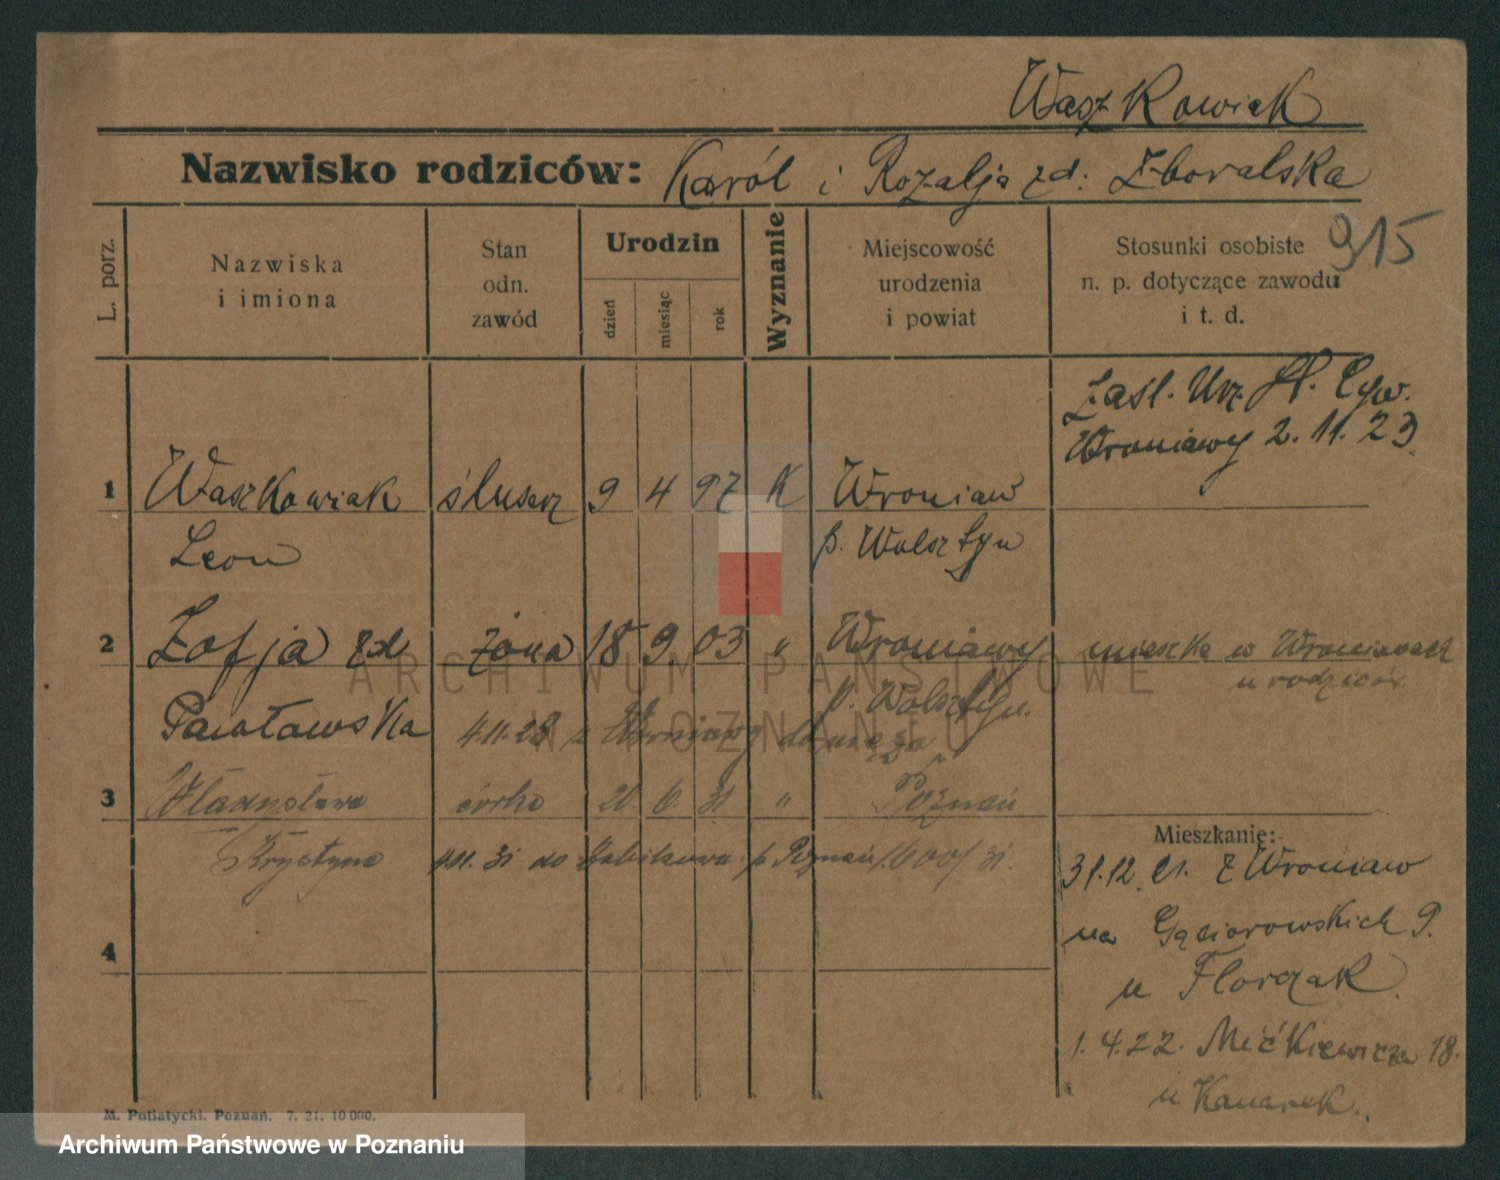 Waszkowiak
Nazwisko rodziców: Karól i Rozalja zd: Zboralska
915
L. porz.
Nazwiska
i imiona
Stan
odn.
zawód
Urodzin
dzień
miesiąc
rok
Wyznanie
Miejscowość
urodzenia
i powiat
Stosunki osobiste
n. p. dotyczące zawodu
i t. d.
Zaśl. Urz. St. Cyw.
Wroniawy 2.11.23.
1 Waszkowiak ślusarz 9 4 97 K Wroniaw
Leon p. Wolsztyn
2 Zofja zd żona 18 9. 03 " Wroniawy mieszka w Wroniawach
u rodziców
Pawłowska p. Wolsztyn.
4.11.23 z Wroniawy do męża
3 Władysława córka 21. 6. 31 " Poznań
Krystyna 4.11. 31 do p. Poznań 1600/31.
4
Mieszkanie:
31.12.21. z Wroniaw
na Gąsiorowskich 9.
u Florczak.
1.4.22. Mićkiewicza 18.
u Kanarek.
M. Putiatycki. Poznań. 7. 21. 10 000.
ARCHIWUM PAŃSTWOWE
W POZNANIU
Archiwum Państwowe w Poznaniu